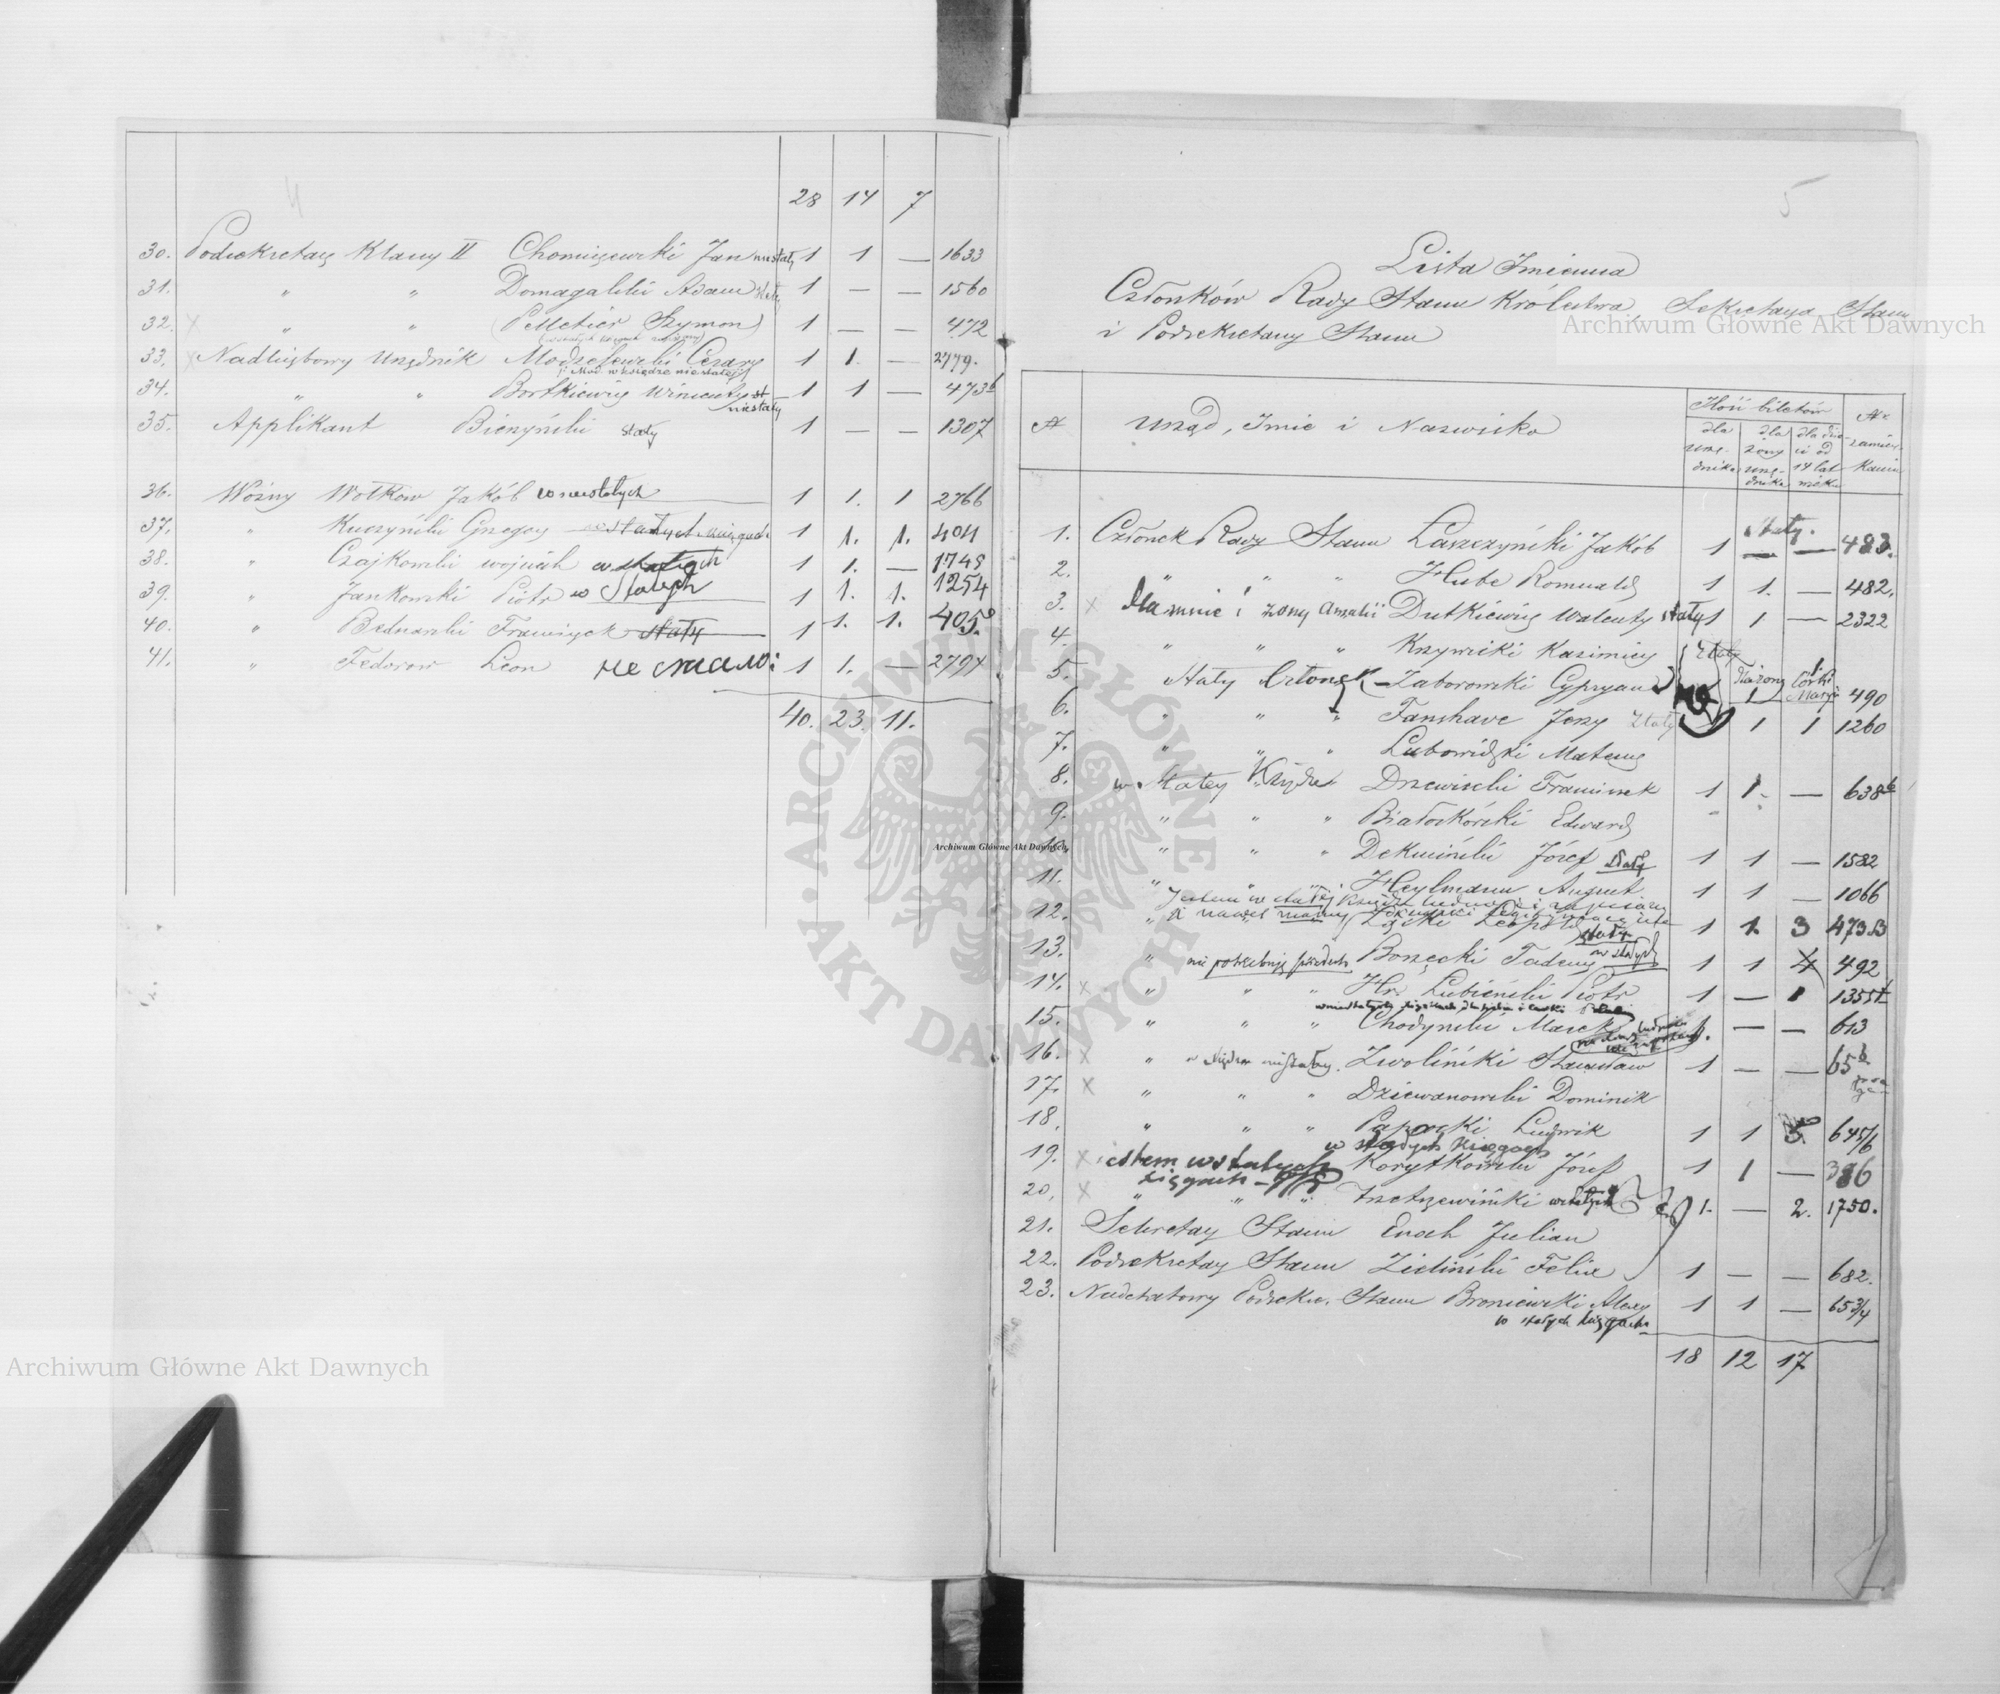 4
28 14 7
30. Podsekretarz Klassy II Chomiszewski Jan niestały 1 1 — 1633
31. " " Domagalski Adam stały 1 — — 1560
32. × " " (Pelletier Szymon) 1 — — 472
33. × Nadliczbowy Urzędnik Modzelewski Cezary 1 1. — 2779.
w księdze niestałej
34. " " Bortkiewicz Wincenty st 1 1 — 473b
niestały
35. Applikant Bieńyński stały 1 — — 1307
36. Woźny Wołkow Jakób w niestałych 1 1. 1 2766
37. " Kuczyński Grzegorz w stałych księgach 1 1. 1. 404
38. " Czajkowski Wojciech w stałych 1 1. — 1748
39. " Jankowski Piotr w Stałych 1 1. 1. 1254
40. " Bednarski Franciszek stały 1 1. 1. 405
41. " Fedorow Leon 1 1. — 2794
40. 23. 11.
5
Lista Imienna
Członków Rady Stanu Królestwa, Sekretarza Stanu
i Podsekretarzy Stanu
№ Urząd, Imie i Nazwisko
Ilość biletów
dla urzędnika
dla żony urzędnika
dla dzieci od 14 lat wieku
Nr zamieszkania
1. Członek Rady Stanu Łaszczyński Jakób 1 stały. — — 483.
2. " " " Hube Romuald 1 1. — 482.
3. × dla mnie i żony Amalii Dutkiewicz Walenty stały 1 1 — 2322
4. " " " Krzywicki Kazimierz stały
5. Stały Członek Zaborowski Cypryan dla żony 1 1 córki Maryi 490
6. " " " Fanshave Jerzy stały 1 1 1 1260
7. " " " Lubowidzki Mateusz
8. w Stałey Księdze Drzewiecki Franciszek 1 1. — 638b
9. " " " Białoskórski Edward
10. " " " Dekuciński Józef stały 1 1 — 1582
11. " Heylmann August 1 1 — 1066
Jestem w stałej Księdze
12. " Leopold 1 1. 3 473B
stały
13. " nie potrzebuję Borzęcki Tadeusz w stałych 1 1 4 492
14. × " " " Hr. Łubieński Piotr 1 — 1 1355
15. " " " Chodyński Marek 1. — — 613
16. × " w Księdze niestałey. Zwoliński Stanisław 1 — — 65b
17. × " " " Dziewanowski Dominik
18. " " " Ludwik 1 1 3. 645/6
w stałych Księgach
19. × jestem w stałych Korytkowski Józef 1 1 — 386
księgach
20. × " " " w stałych 1. — 2. 1750.
21. Sekretarz Stanu Enoch Julian
22. Podsekretarz Stanu Zieliński Felix 1 — — 682.
23. Nadetatowy Podsekr. Stanu Broniewski Alexy 1 1 — 653/4
w stałych księgach
18 12 17
Archiwum Główne Akt Dawnych
Archiwum Główne Akt Dawnych
Archiwum Główne Akt Dawnych
ARCHIWUM GŁÓWNE • AKT DAWNYCH •